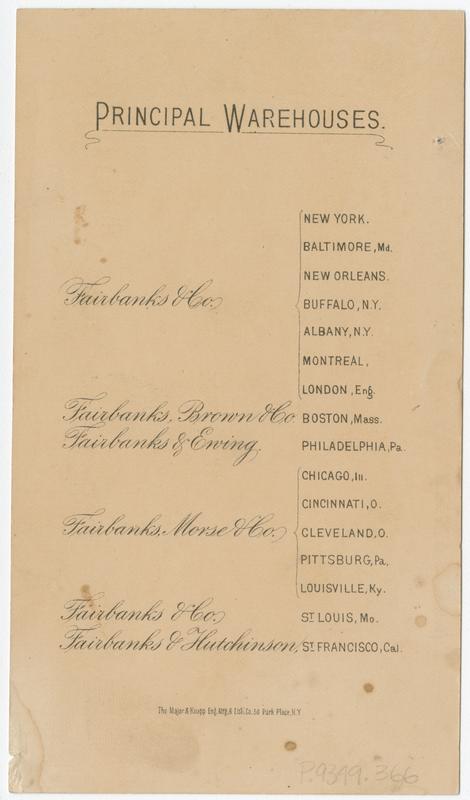 PRINCIPAL WAREHOUSES.
NEW YORK.
BALTIMORE, Md.
NEW ORLEANS.
Fairbanks & Co. BUFFALO, N.Y.
ALBANY, N.Y.
MONTREAL,
LONDON, Eng.
Fairbanks, Brown & Co. BOSTON, Mass.
Fairbanks & Ewing. PHILADELPHIA, Pa.
CHICAGO, Ill.
CINCINNATI, O.
Fairbanks, Morse & Co. CLEVELAND, O.
PITTSBURG, Pa.
LOUISVILLE, Ky.
Fairbanks & Co. ST LOUIS, Mo.
Fairbanks & Hutchinson, ST FRANCISCO, Cal.
The Major & Knapp Eng. Mfg. & Lith. Co. 56 Park Place, N.Y
P.9349.366